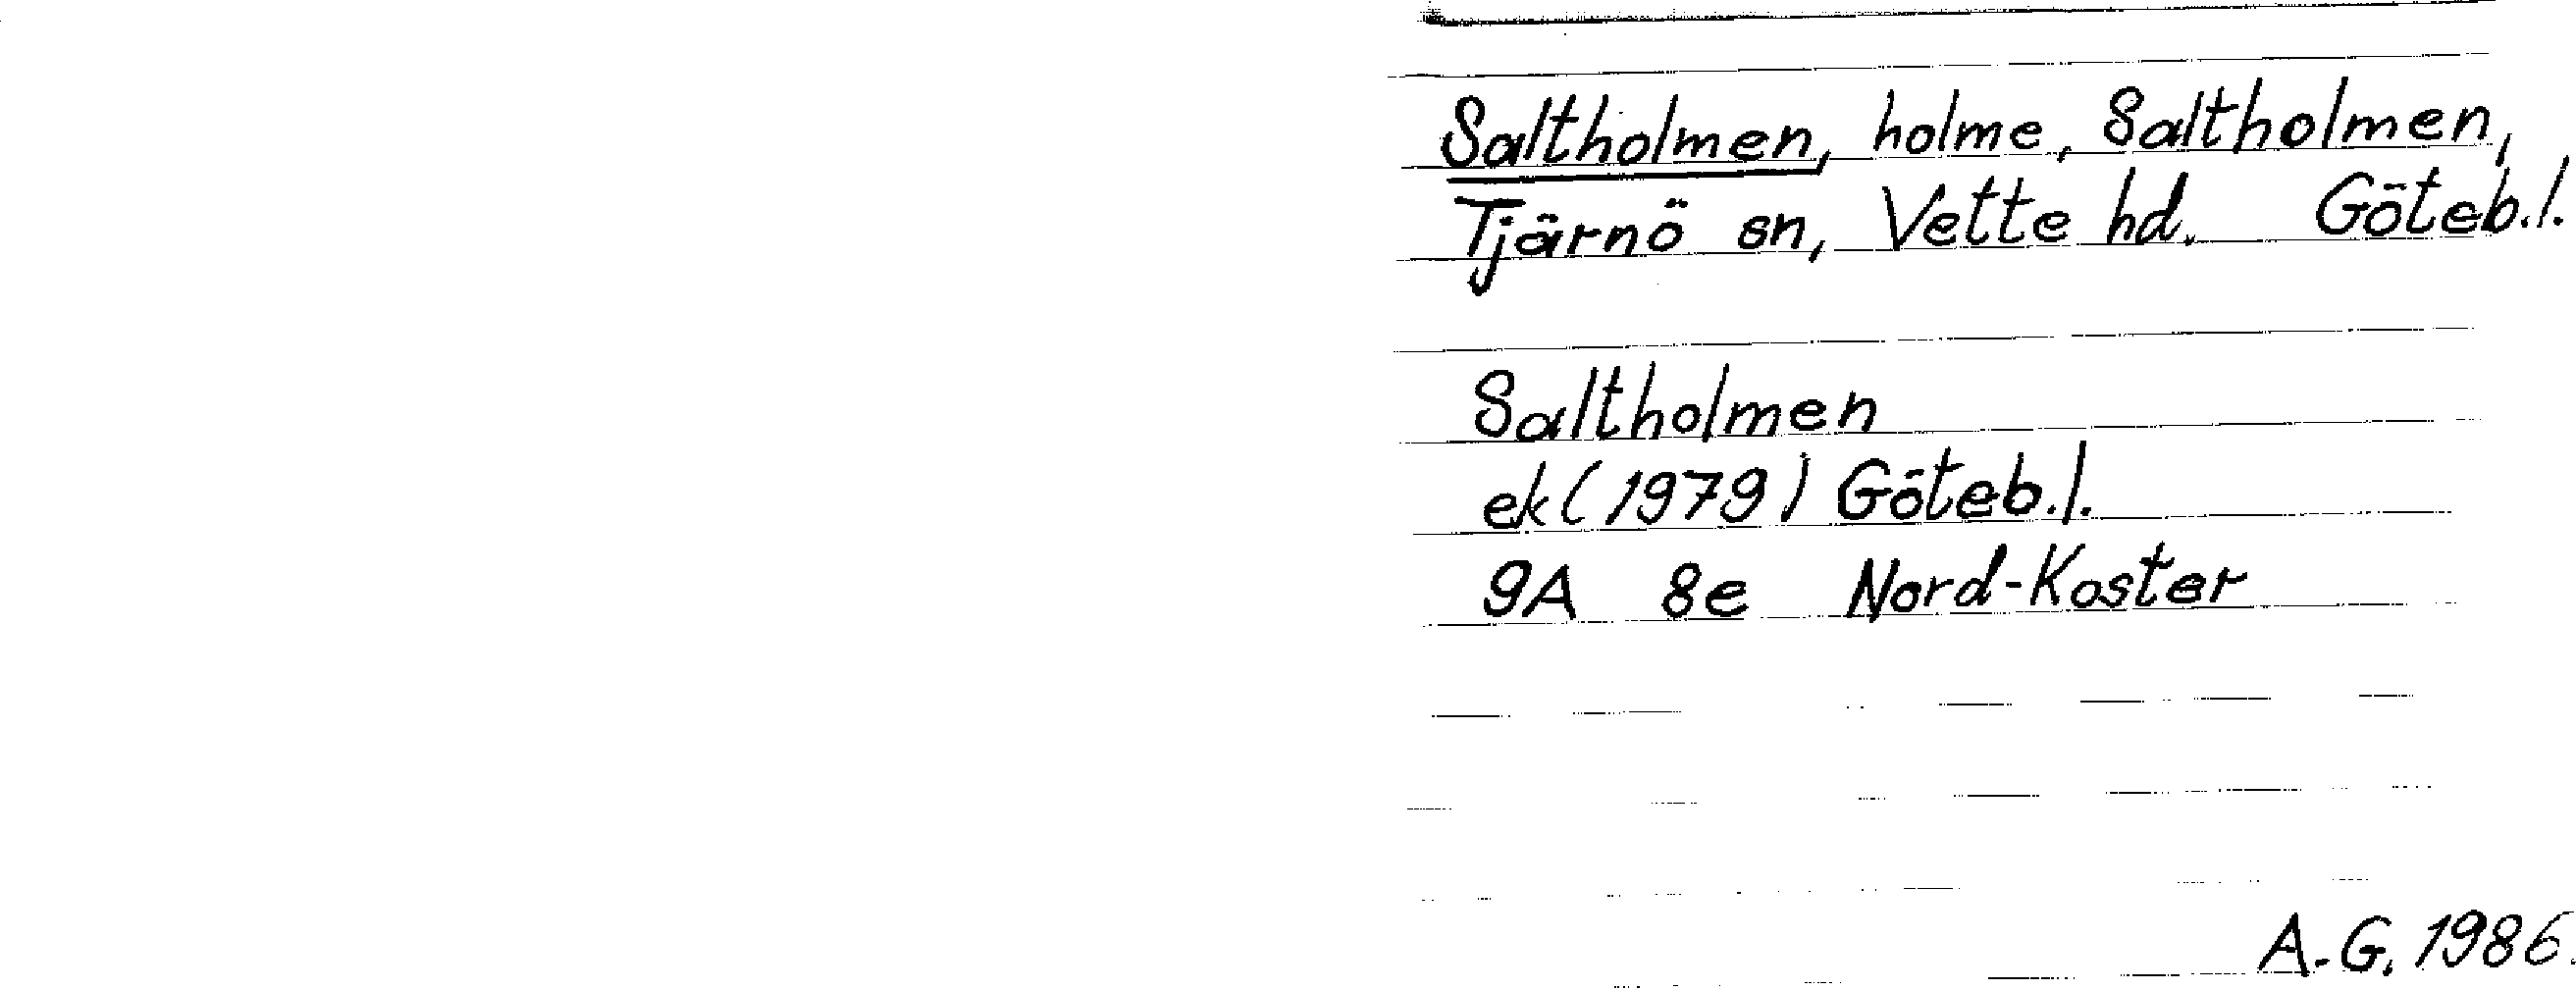 Saltholmen, holme, Saltholmen,
Tjärnö sn, Vette hd. Göteb.l.
Saltholmen
ek (1979) Göteb.l.
9A 8e Nord-Koster
A.G. 1986.